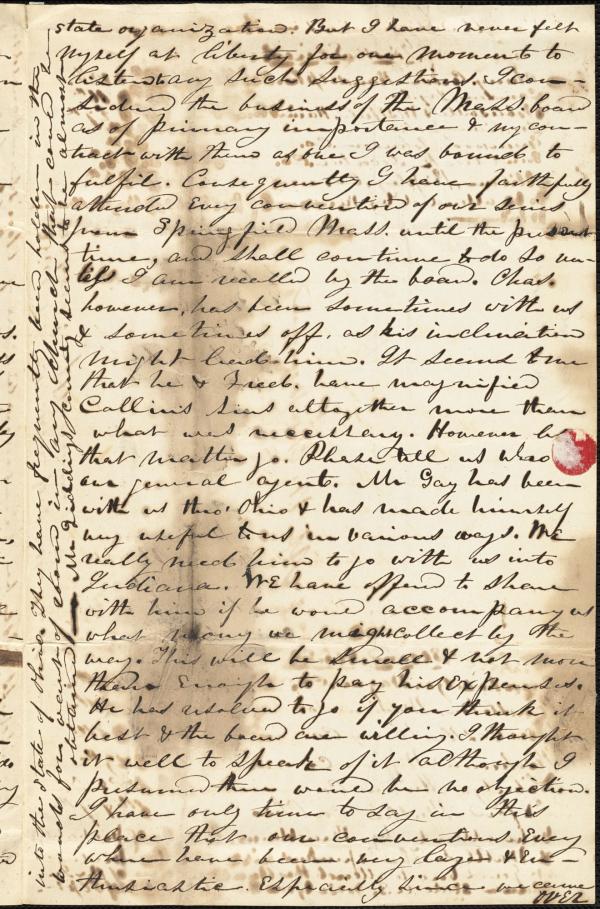 state organization. But I have never felt
myself at liberty for one moment to
listen to any such suggestions. I con-
sidered the business of the Mass. board
as of primary importance & my con-
tract with them as one I was bound to
fulfil. Consequently I have faithfully
attended every convention of our series
from Springfield Mass. until the present
time, and shall continue to do so un-
less I am recalled by the board. Chas.
however, has been sometimes with us
& sometimes off, as his inclination
might lead him. It seems to me
that he & Fred. have magnified
Collins sins altogether more than
what was necessary. However let
that matter go. Please tell us who
are general agents. Mr Gay has been
with us thro' Ohio & has made himself
very useful to us in various ways. We
really need him to go with us into
Indiana. We have offered to share
with him if he would accompany us
what money we might collect by the
way. This will be small & not more
than enough to pay his expenses.
He has resolved to go if you think it
best & the board are willing. I thought
it well to speak of it although I
presumed there would be no objection.
I have only time to say in this
place that our conventions every
where have been very large & en-
thusiastic. Especially since we came
OVER
into the State of Ohio. They have frequently been holden in the
woods for want of room in any church that could be
obtained. Mr Giddings' county seems to be almost